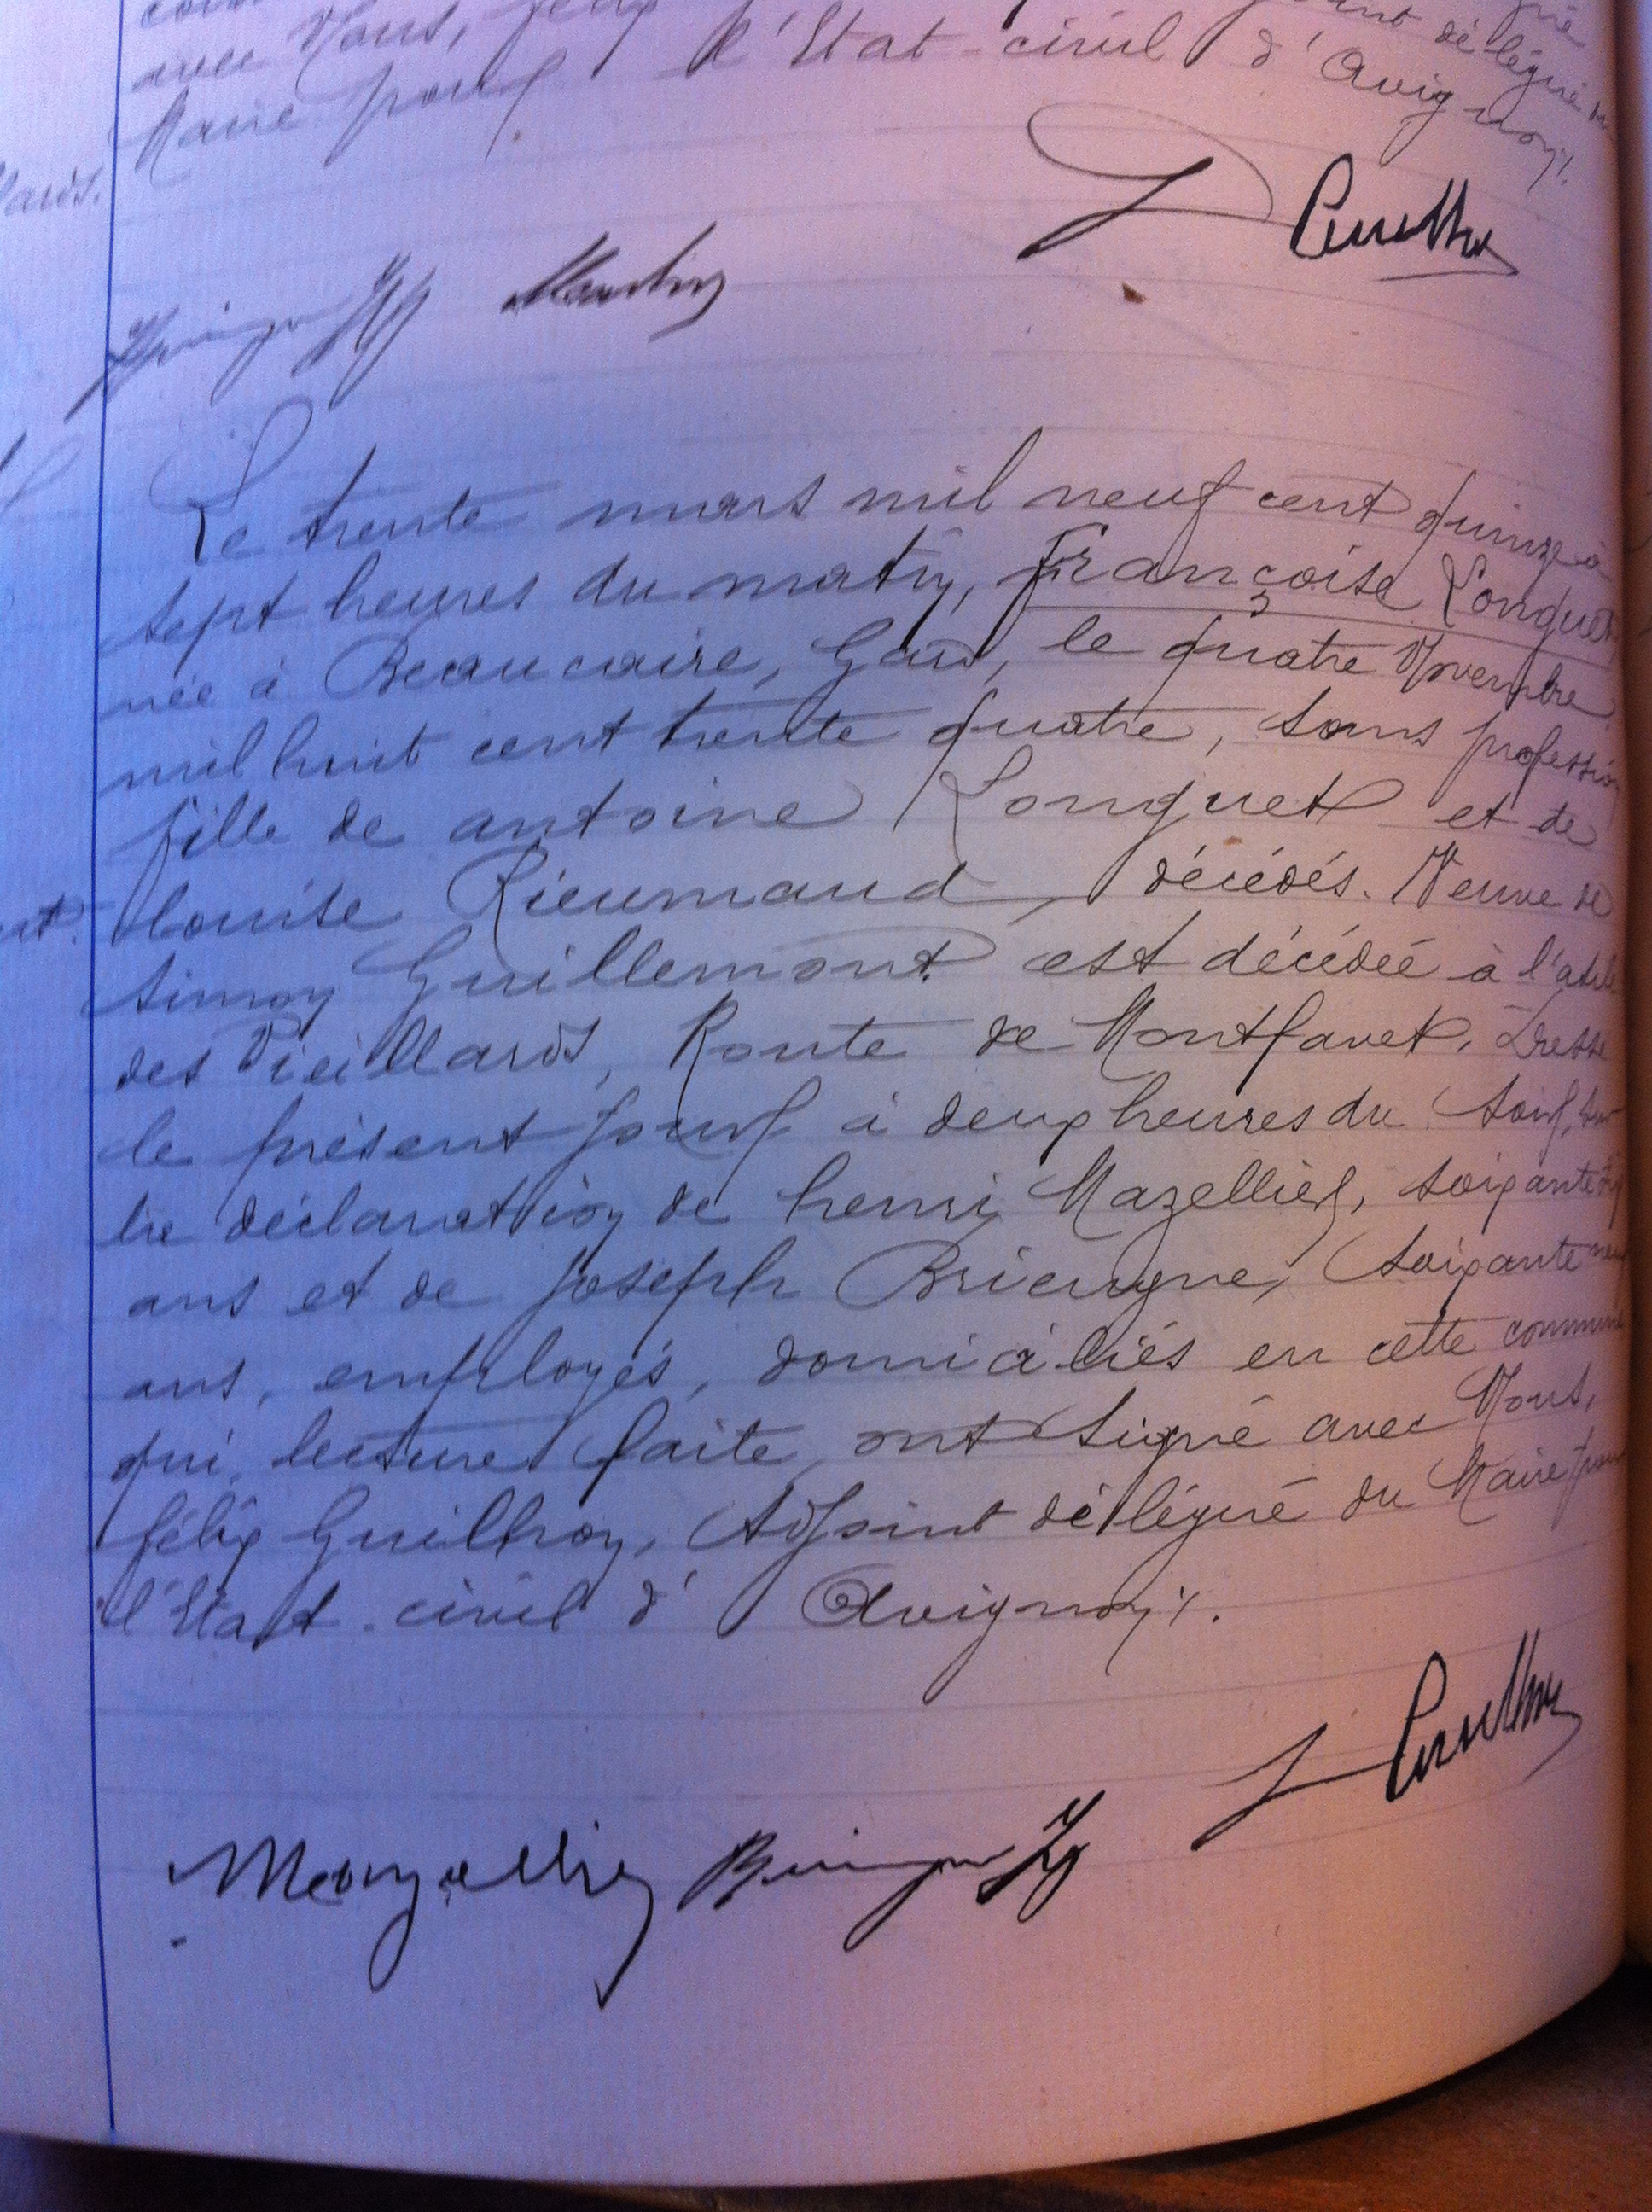 avec Nous,
délégué du
Maire pour l'Etat-civil d'Avignon ⁒.
lards.
Martin
Le trente mars mil neuf cent quinze à
sept heures du matin, Françoise Longuet
née à Beaucaire, Gard, le quatre Novembre
mil huit cent trente quatre, sans profession
fille de antoine Longuet et de
louise Rieumaud, décédés. Veuve de
simon Guillemont. est décédée à l'asile
des Vieillards, Route de Montfavet. Dressé
le présent jour à deux heures du soir, sur
la déclaration de henri Mazellier, soixante
ans et de Joseph Brieugne, soixante neuf
ans, employés, domiciliés en cette commune
qui, lecture faite, ont signé avec Nous,
félix Guilhon, Adjoint délégué du Maire pour
l'Etat-civil d'Avignon ⁒.
Mazellier